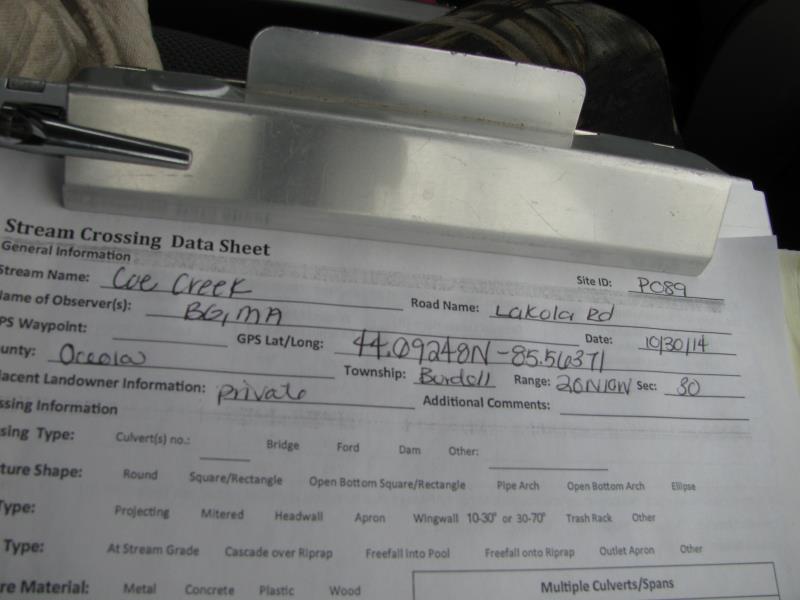 Stream Crossing Data Sheet
General Information
Stream Name: Coe Creek Site ID: PC89
Name of Observer(s): BG, MA Road Name: Lakola Rd
PS Waypoint: GPS Lat/Long: 44.09248N -85.56371 Date: 10/30/14
ounty: Oceola Township: Burdell Range: 20N10W Sec: 30
acent Landowner Information: private Additional Comments:
ssing Information
sing Type: Culvert(s) no.: Bridge Ford Dam Other:
ture Shape: Round Square/Rectangle Open Bottom Square/Rectangle Pipe Arch Open Bottom Arch Ellipse
Type: Projecting Mitered Headwall Apron Wingwall 10-30° or 30-70° Trash Rack Other
Type: At Stream Grade Cascade over Riprap Freefall into Pool Freefall onto Riprap Outlet Apron Other
re Material: Metal Concrete Plastic Wood Multiple Culverts/Spans